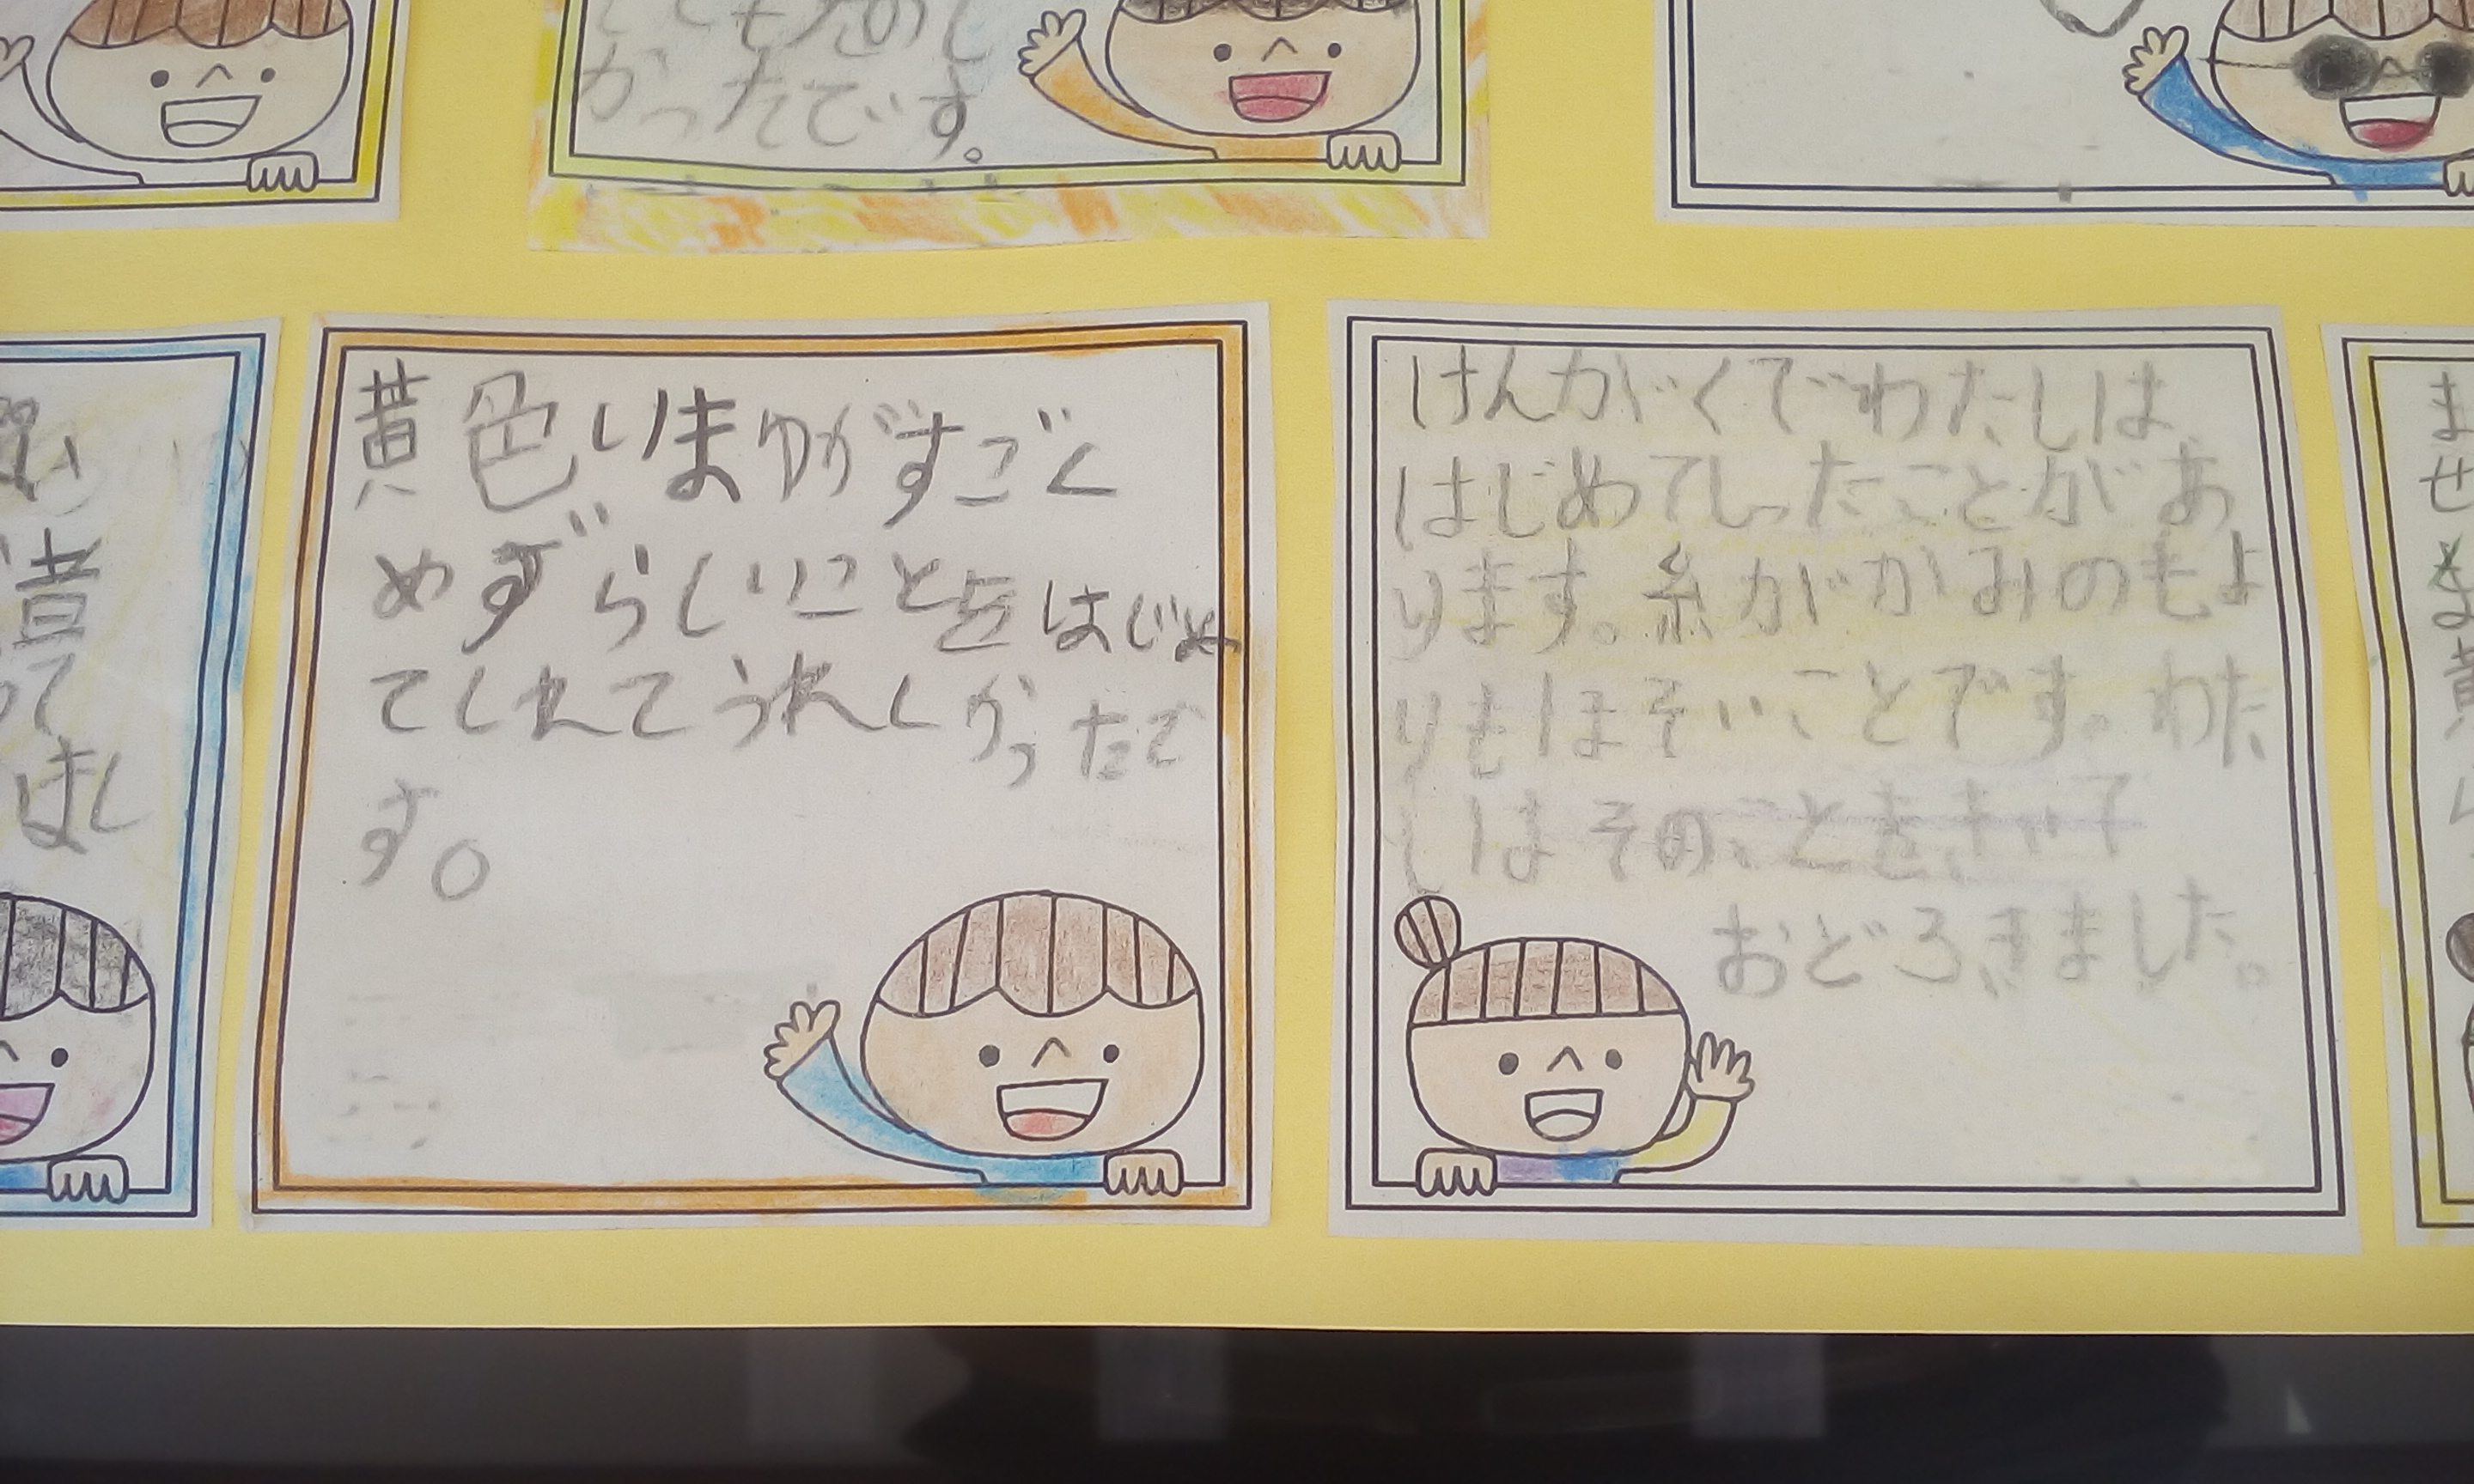 とてもたのし
かったです。
黄色いまゆがすごく
めずらしいことをはじめ
てしれてうれしかったで
す。
けんがくでわたしは、
はじめてしったことがあ
ります。糸がかみのもよ
りもほそいことです。わた
しはそのことをきいて
おどろきました。
昔
って
はし
ま
せ